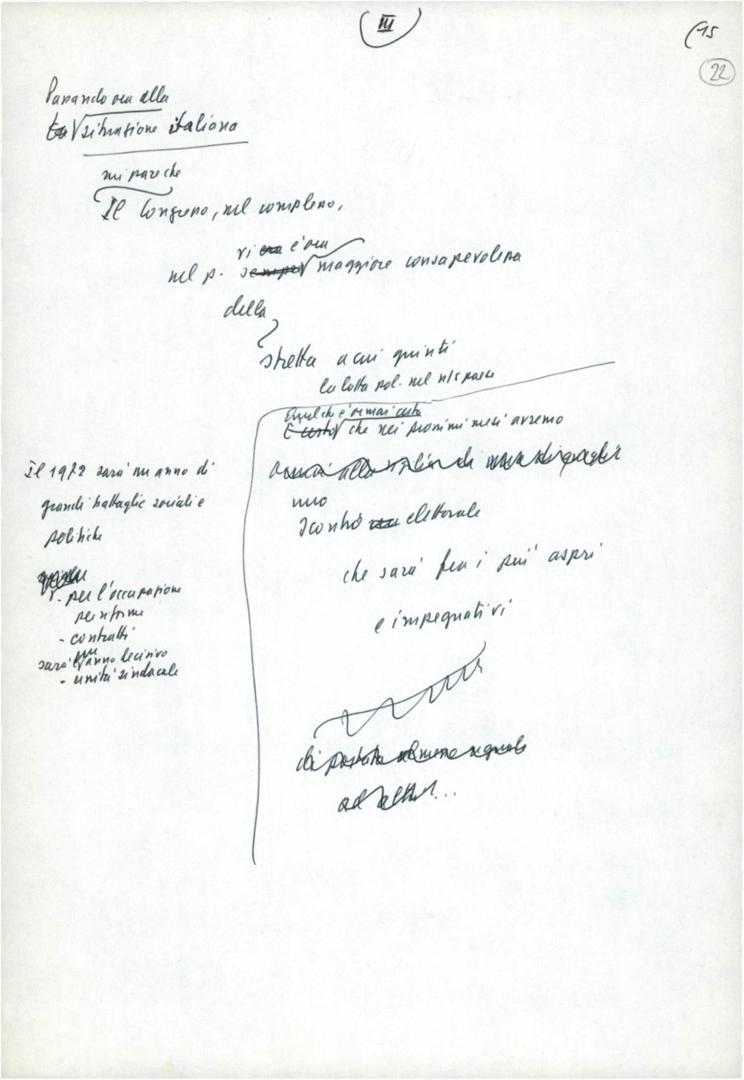 III
15
22
Passando ora alla
La situazione italiana
mi pare che
Il Congresso, nel complesso,
vi è ora
nel p. sempre maggiore consapevolezza
della
stretta a cui è giunti
la lotta pol. nel n/s paese
Quel che è ormai certo
È certo che nei prossimi mesi avremo
uno
scontro elettorale
che sarà fra i più aspri
e impegnativi
di portata almeno eguale
ad altri...
Il 1972 sarà un anno di
grandi battaglie sociali e
politiche
- per l'occupazione
per riforme
- contratti
sarà un anno decisivo
- unità sindacale